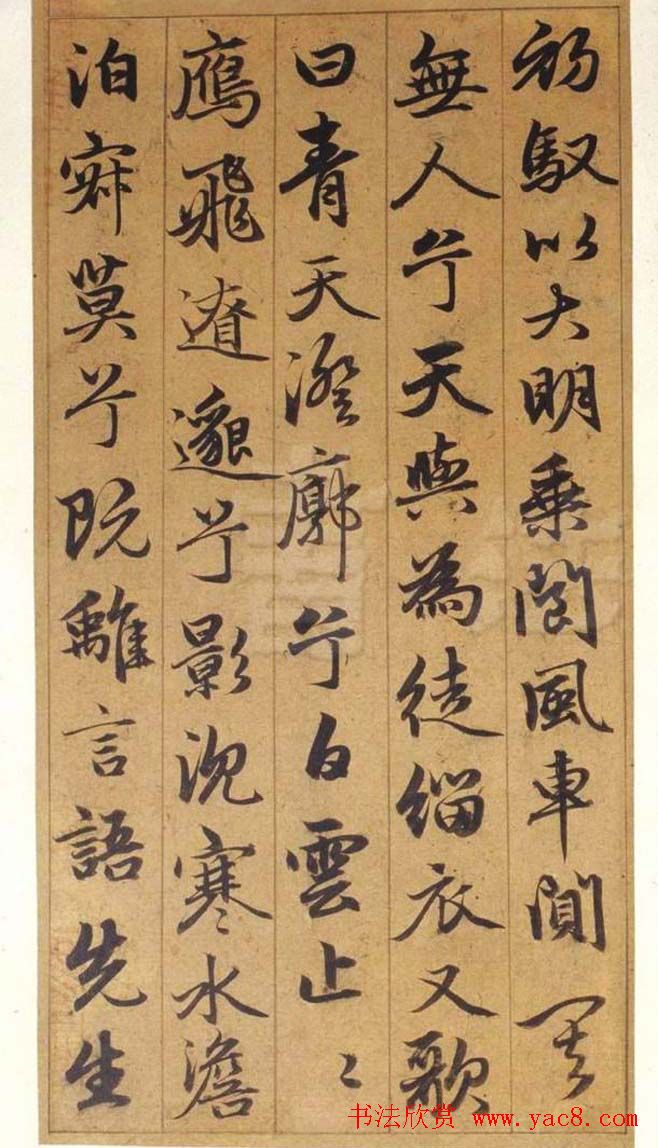 初馭以大明乘閬風車闃其
無人兮天與為徒緇衣又歌
曰青天澄廓兮白雲止〻
鴈飛遼邈兮影沉寒水澹
泊寂莫兮既離言語先生
书法欣赏 www.yac8.com